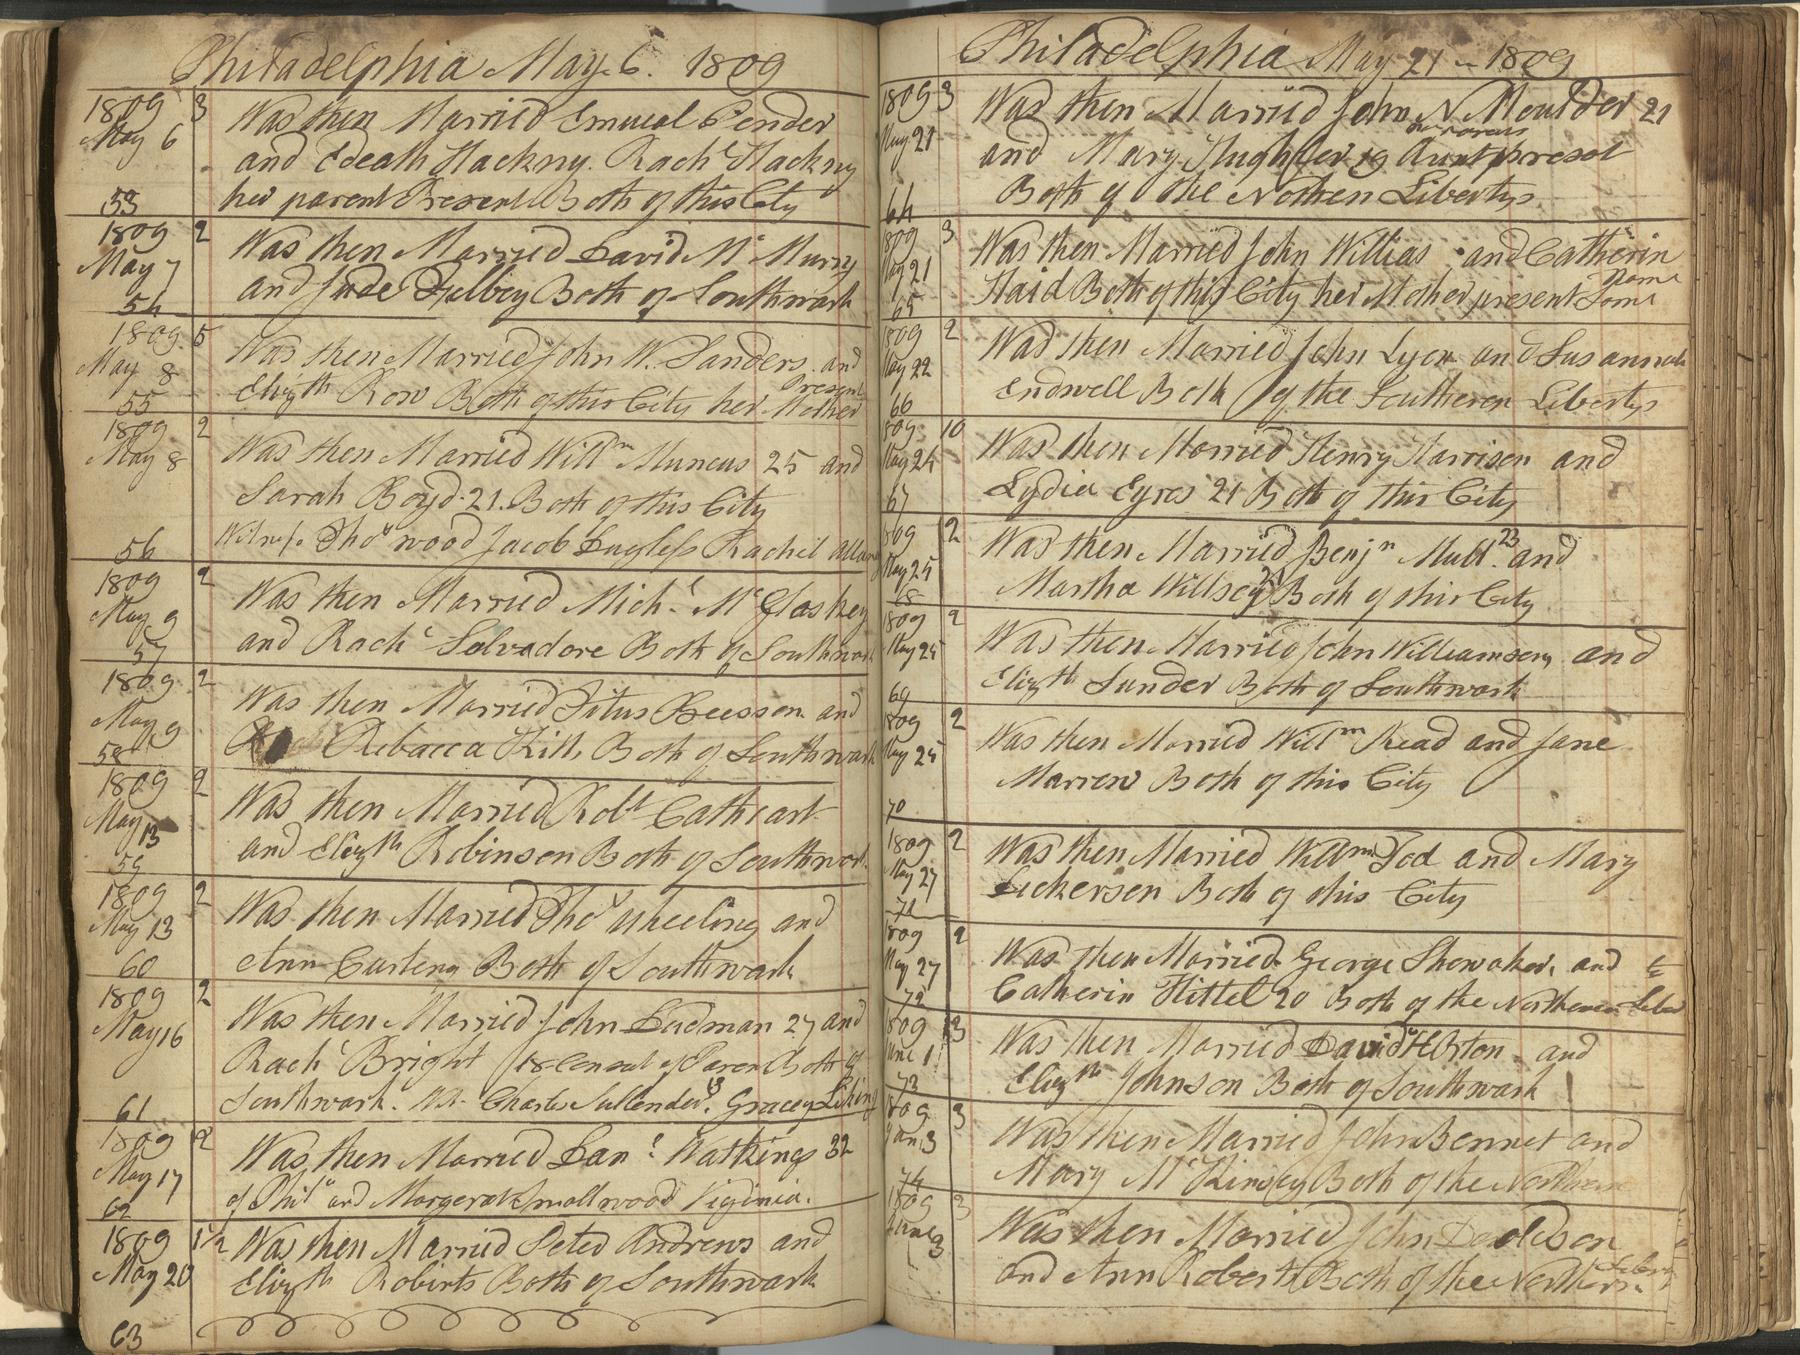 Philadelphia May 6. 1809
1809 3 Was then Married Emueal Pender
May 6 and Edeath Hackny. Rachl Hackny
53 her parent Present Both of this City
1809 2 Was then Married David Mc Murry
May 7 and Jude Both of Southwark
54
1809 5 Was then Married John W. Sanders and
May 8 Elizth Row Both of this City her Mother Present
55
1809 2 Was then Married Willm Muncus 25 and
May 8 Sarah Boyd 21. Both of this City
56 Witness Thos wood Jacob Rachel
1809 2 Was then Married Michl Mc Closkey
May 9 and Rachl Solvadore Both of Southwark
57
1809 2 Was then Married Titus Beesson and
May 9 Rebacca Both of Southwark
58
1809 2 Was then Married Robt Cathcart
May 13 and Elizth Robinson Both of Southwark
59
1809 2 Was then Married Thos Wheeling and
May 13 Ann Both of Southwark
60
1809 2 Was then Married John 27 and
May 16 Rachl Bright 18 Consent of Paren Both of
61 Southwark. Charls Gracey
1809 2 Was then Married Danl Wathings 32
May 17 of Phila and Margerat Smallwood Viginia.
62
1809 1 1/2 Was then Married Peter Andrews and
May 20 Elizth Roberts Both of Southwark
63
Philadelphia May 21 - 1809
1809 3 Was then Married John N Moulder 21
May 21 and Mary Hughs her parents Aunt present
64 Both of the Nothen Libertys
1809 3 Was then Married John Willias and Catherin
May 21 Haid Both of this City her Mother present
65
1809 2 Was then Married John Lyon and Susannah
May 22 Endwell Both of the Southeren Libertys
66
1809 10 Was then Married Henry Harrison and
May 24 Lydia Eyres 21 Both of this City
67
1809 2 Was then Married Benjn Mull 23 and
May 25 Martha Willsey 21 Both of this City
68
1809 2 Was then Married John Williamson and
May 25 Elizth Sunder Both of Southwark
69
1809 2 Was then Married Willm Read and Jane
May 25 Marrow Both of this City
70
1809 2 Was then Married Willm Tod and Mary
May 27 Dickerson Both of this City
71
1809 2 Was then Married George Showaker, and
May 27 Catherin Hittel 20 Both of the Northeren Liber
72
1809 3 Was then Married David Horton and
June 1 Elizth Johnson Both of Southwark
73
1809 3 Was then Married John Bennet and
June 3 Mary Mc Kinsey Both of the Northern
74
1809 3 Was then Married John
June 3 and Ann Robert Both of the Northern